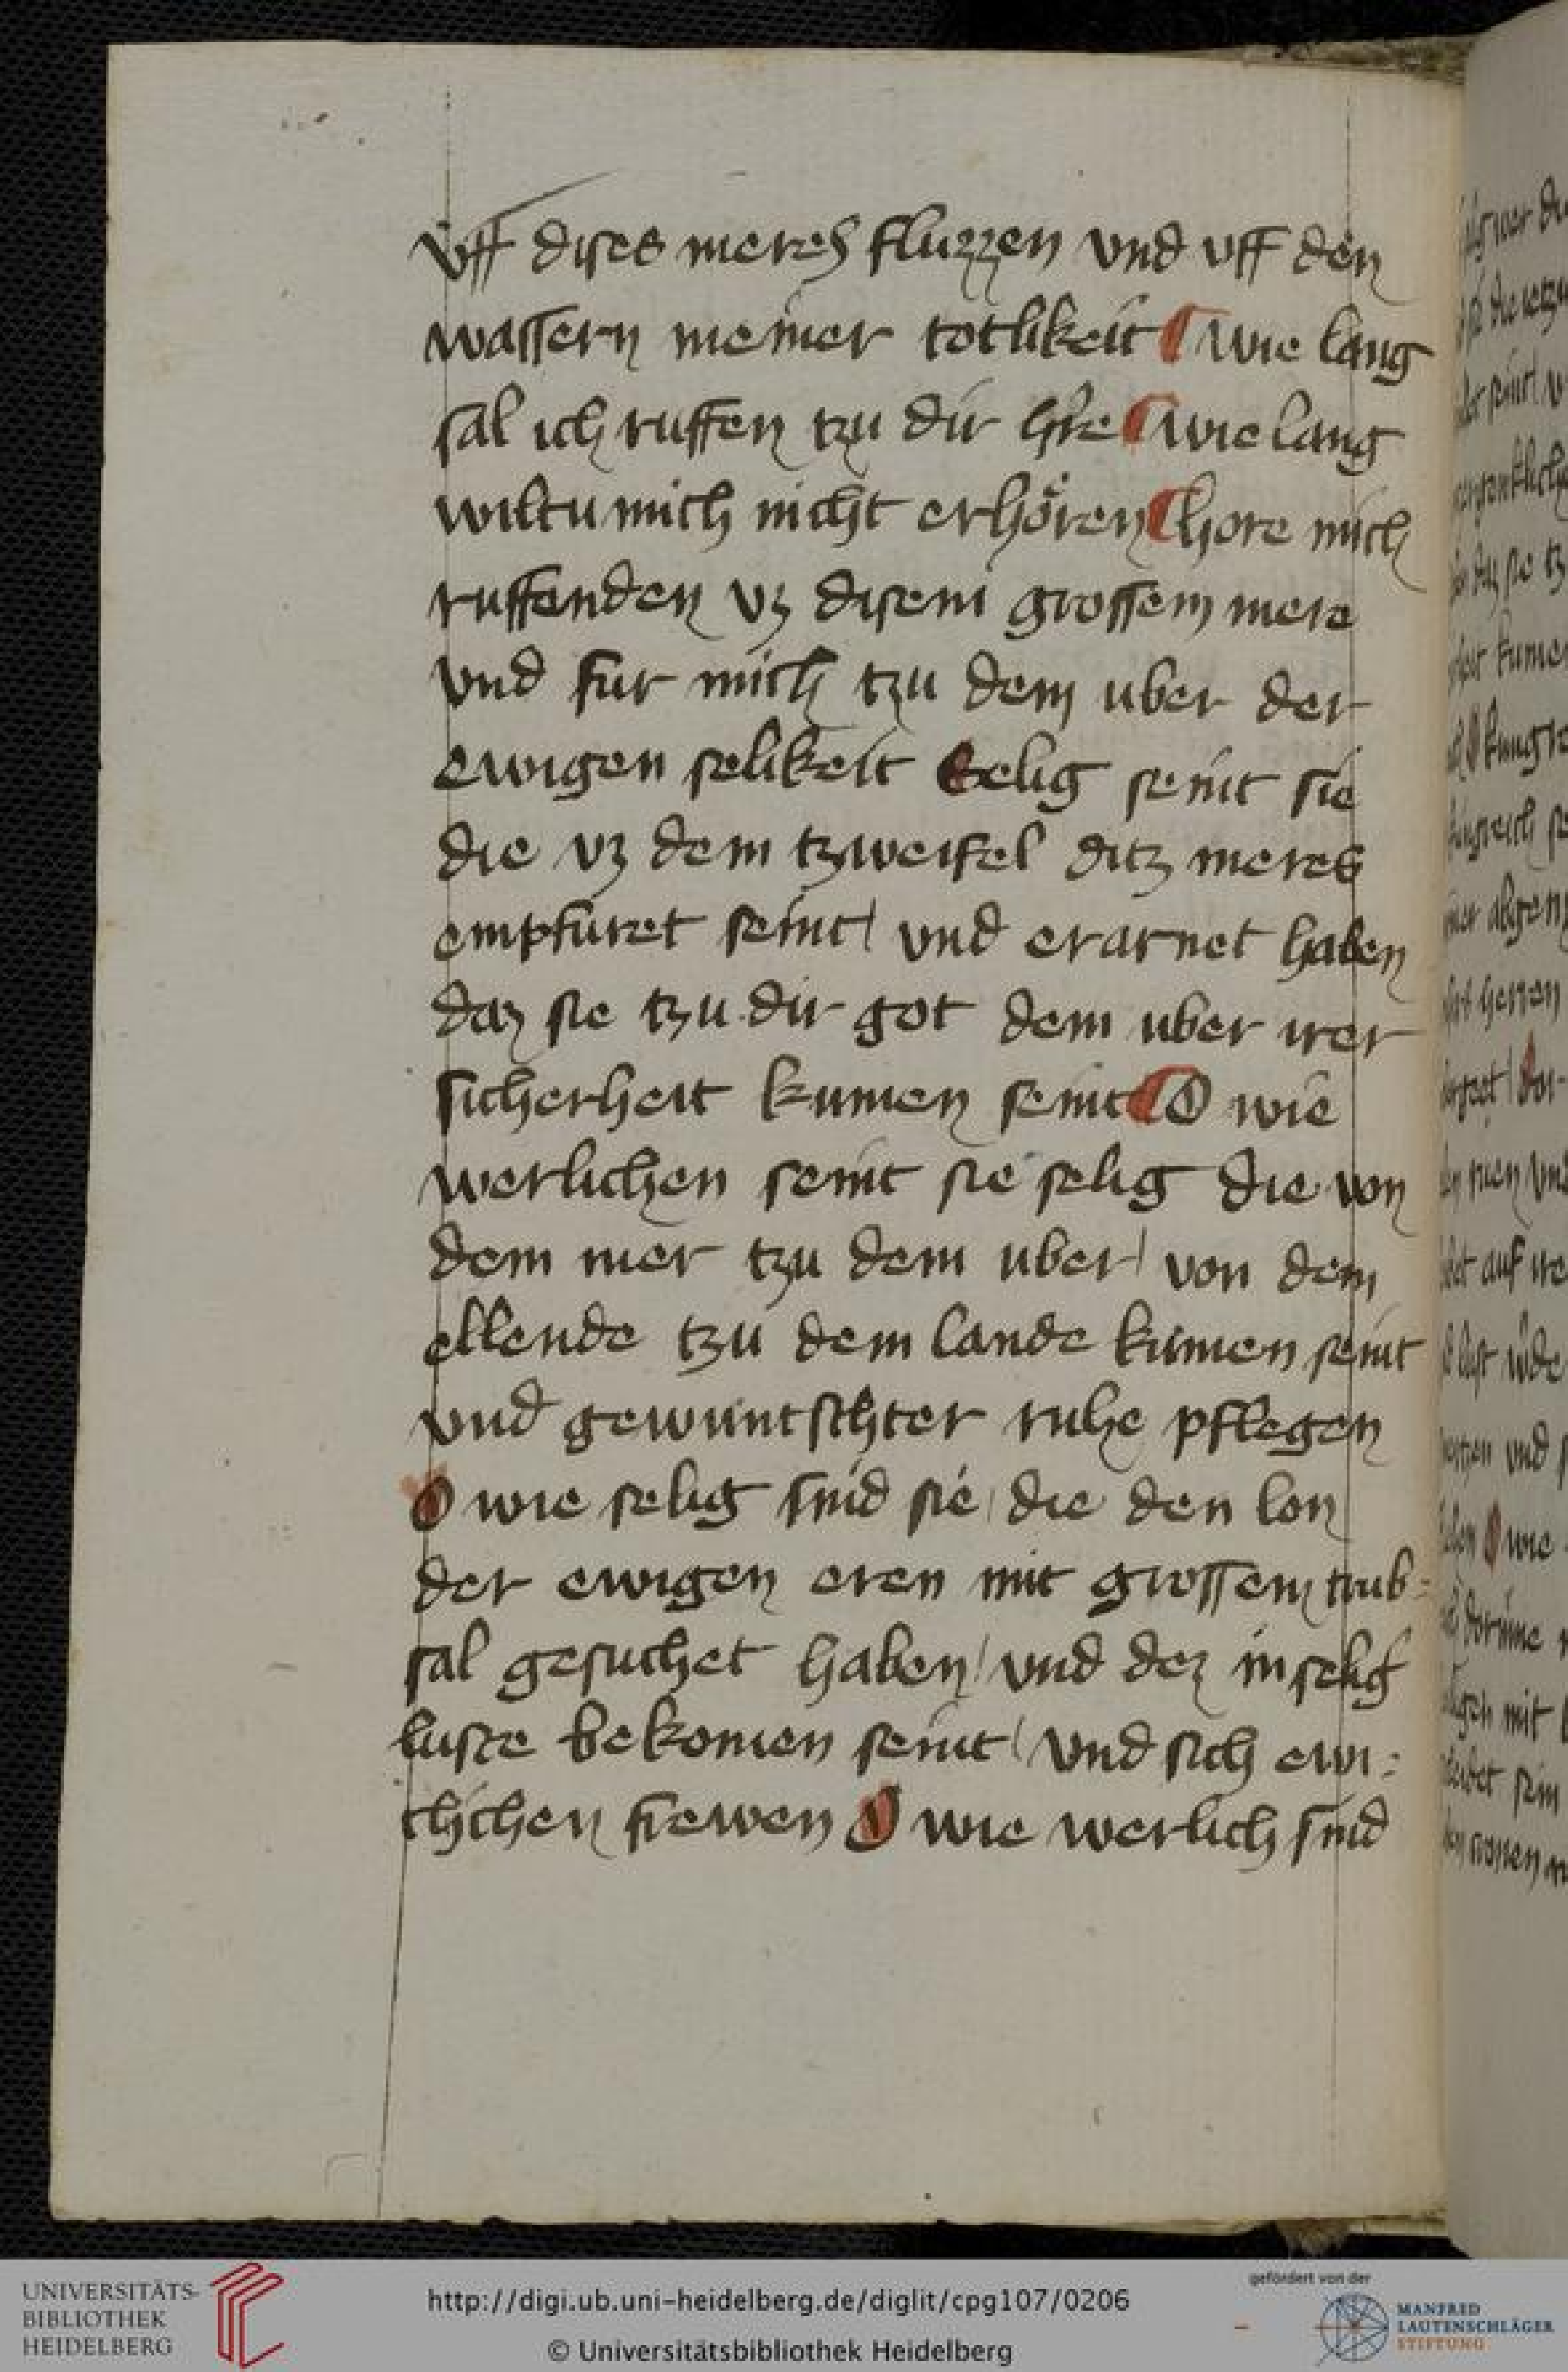 vff dises meres fluzzen vnd vff den
wassern meiner totlikeit ¶ wie lang
sal ich ruffen tzu dir hre ¶ wie lang
wiltu mich nicht erhören ¶ hore mich
ruffenden vz disem grossem mere
vnd fur mich tzu dem uber der
ewigen selikeit Selig seint sie
die vz dem tzweifel ditz meres
empfuret seint / vnd erarnet haben
daz sie tzu dir got dem uber irer
sicherheit kumen seint ¶ O wie
werlichen seint sie selig die von
dem mer tzu dem uber / von dem
ellende tzu dem lande kumen seint
vnd gewuntschter ruhe pflegen
O wie selig sind sie / die den lon
der ewigen eren mit grossem trub:
sal gesuchet haben / vnd dez in selig
luste bekomen seint / vnd sich ewi:
chichen frewen O wie werlich sind
UNIVERSITÄTS-
BIBLIOTHEK
HEIDELBERG
http://digi.ub.uni-heidelberg.de/diglit/cpg107/0206
© Universitätsbibliothek Heidelberg
gefördert von der
MANFRED
LAUTENSCHLÄGER
STIFTUNG